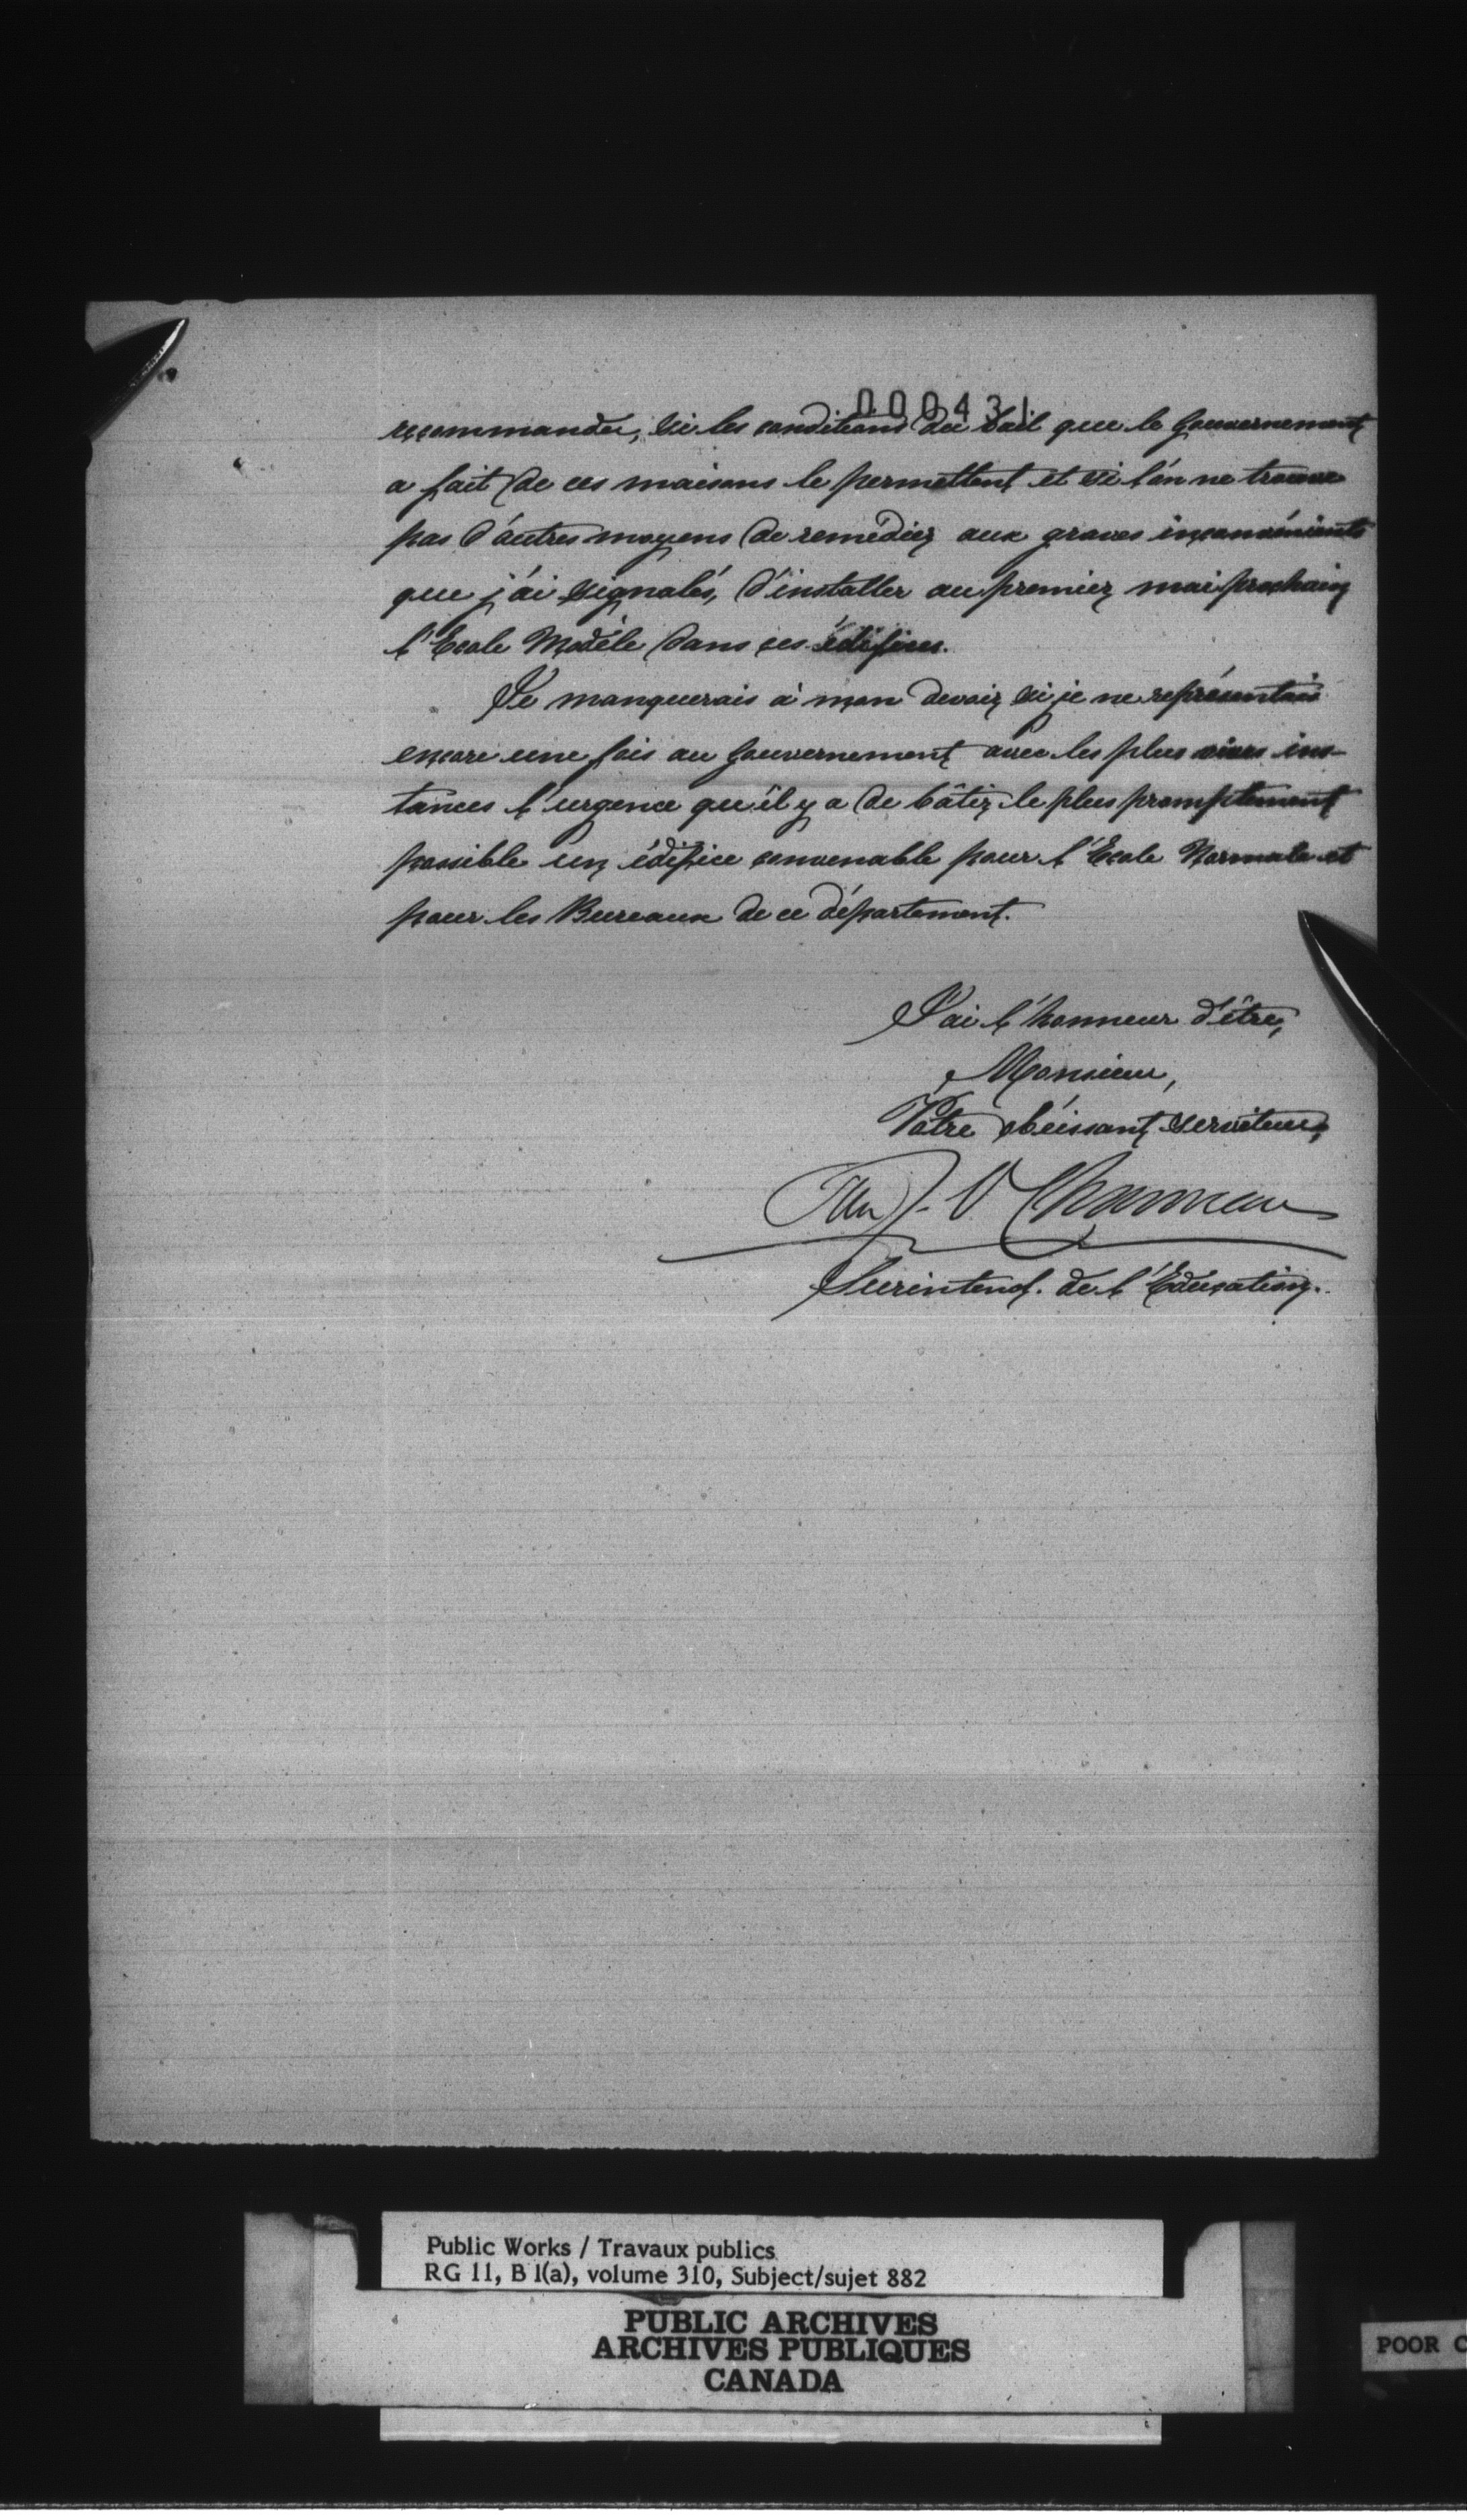 000431
recommander, si les conditions du bail que le Gouvernement
a fait de ces maisons le permettent et si l'on ne trouve
pas d'autres moyens de remédier aux graves inconvénients
que j'ai signalés, d'installer au premier mai prochain
l'Ecole Modèle dans ces édifices.
Je manquerais à mon devoir si je ne représentais
encore une fois au Gouvernement avec les plus vives ins-
tances l'urgence qu'il y a de bâtir le plus promptement
possible un édifice convenable pour l'Ecole Normale et
pour les Bureaux de ce département.
J'ai l'honneur d'être,
Monsieur,
Votre obéissant serviteur,
Chauveau
Surintend. de l'Education.
Public Works / Travaux publics
RG 11, B 1(a), volume 310, Subject/sujet 882
PUBLIC ARCHIVES
ARCHIVES PUBLIQUES
CANADA
POOR C